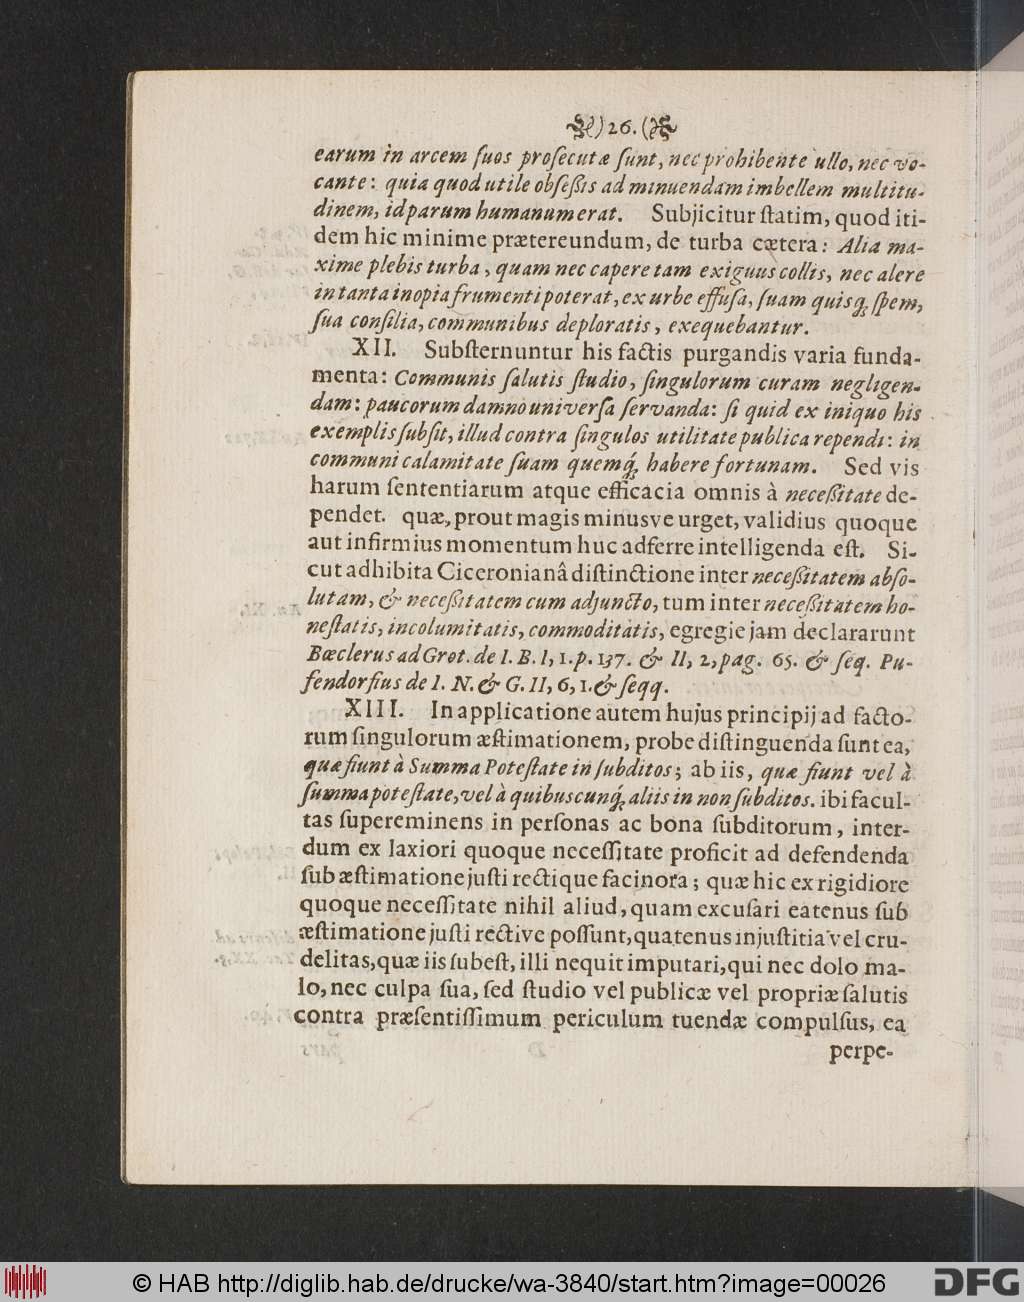 )26.(
earum in arcem ſuos proſecutæ ſunt, nec prohibente ullo, nec vo-
cante: quia quod utile obſeßis ad minuendam imbellem multitu-
dinem, id parum humanum erat. Subjicitur ſtatim, quod iti-
dem hic minime prætereundum, de turba cætera: Alia ma-
xime plebis turba, quam nec capere tam exiguus collis, nec alere
in tanta inopia frumenti poterat, ex urbe effuſa, ſuam quisq; ſpem,
ſua conſilia, communibus deploratis, exequebantur.
XII. Subſternuntur his factis purgandis varia funda-
menta: Communis ſalutis ſtudio, ſingulorum curam negligen-
dam: paucorum damno univerſa ſervanda: ſi quid ex iniquo his
exemplis ſubſit, illud contra ſingulos utilitate publica rependi: in
communi calamitate ſuam quemq́; habere fortunam. Sed vis
harum ſententiarum atque efficacia omnis à neceßitate de-
pendet. quæ, prout magis minusve urget, validius quoque
aut infirmius momentum huc adferre intelligenda eſt. Si-
cut adhibita Ciceronianâ diſtinctione inter neceßitatem abſo-
lutam, & neceßitatem cum adjuncto, tum inter neceßitatem ho-
neſtatis, incolumitatis, commoditatis, egregie jam declararunt
Bœclerus ad Grot. de I. B. I, 1. p. 137. & II, 2, pag. 65. & ſeq. Pu-
fendorfius de I. N. & G. II, 6, 1. & ſeqq.
XIII. In applicatione autem hujus principij ad facto-
rum ſingulorum æſtimationem, probe diſtinguenda ſunt ea,
quæ fiunt à Summa Poteſtate in ſubditos; ab iis, quæ fiunt vel à
ſumma poteſtate, vel à quibuscunq́; aliis in non ſubditos. ibi facul-
tas ſupereminens in perſonas ac bona ſubditorum, inter-
dum ex laxiori quoque neceſſitate proficit ad defendenda
ſub æſtimatione juſti rectique facinora; quæ hic ex rigidiore
quoque neceſſitate nihil aliud, quam excuſari eatenus ſub
æſtimatione juſti rective poſſunt, quatenus injuſtitia vel cru-
delitas, quæ iis ſubeſt, illi nequit imputari, qui nec dolo ma-
lo, nec culpa ſua, ſed ſtudio vel publicæ vel propriæ ſalutis
contra præſentiſſimum periculum tuendæ compulſus, ea
perpe-
© HAB http://diglib.hab.de/drucke/wa-3840/start.htm?image=00026
DFG